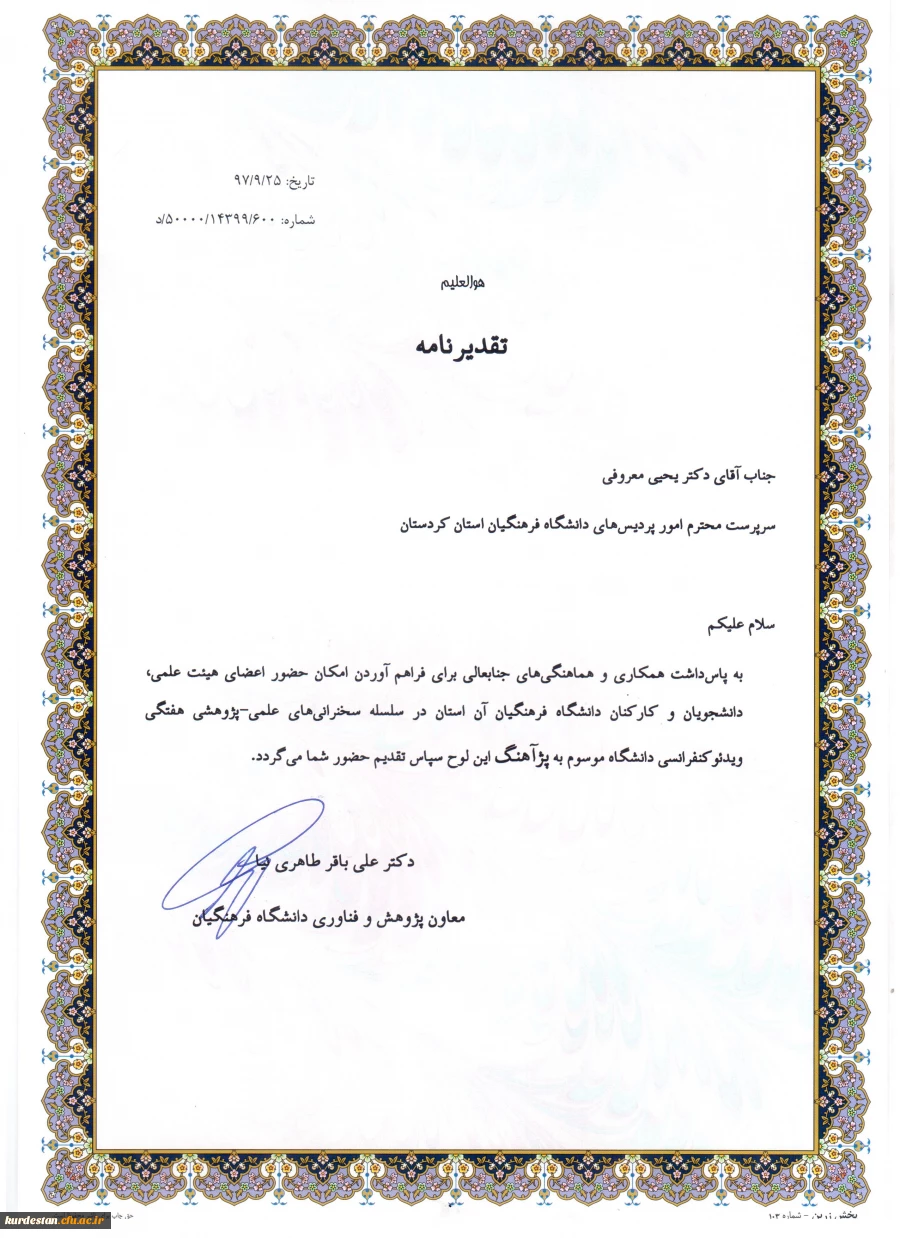 تاریخ: ۹۷/۹/۲۵
شماره: ۵۰۰۰۰/۱۴۳۹۹/۶۰۰/د
هوالعلیم
تقدیرنامه
جناب آقای دکتر یحیی معروفی
سرپرست محترم امور پردیس‌های دانشگاه فرهنگیان استان کردستان
سلام علیکم
به پاس‌داشت همکاری و هماهنگی‌های جنابعالی برای فراهم آوردن امکان حضور اعضای هیئت علمی،
دانشجویان و کارکنان دانشگاه فرهنگیان آن استان در سلسله سخنرانی‌های علمی-پژوهشی هفتگی
ویدئوکنفرانسی دانشگاه موسوم به پژآهنگ این لوح سپاس تقدیم حضور شما می‌گردد.
دکتر علی باقر طاهری نیا
معاون پژوهش و فناوری دانشگاه فرهنگیان
پخش زرین - شماره ۱۰۳
حق چاپ
kurdestan.cfu.ac.ir